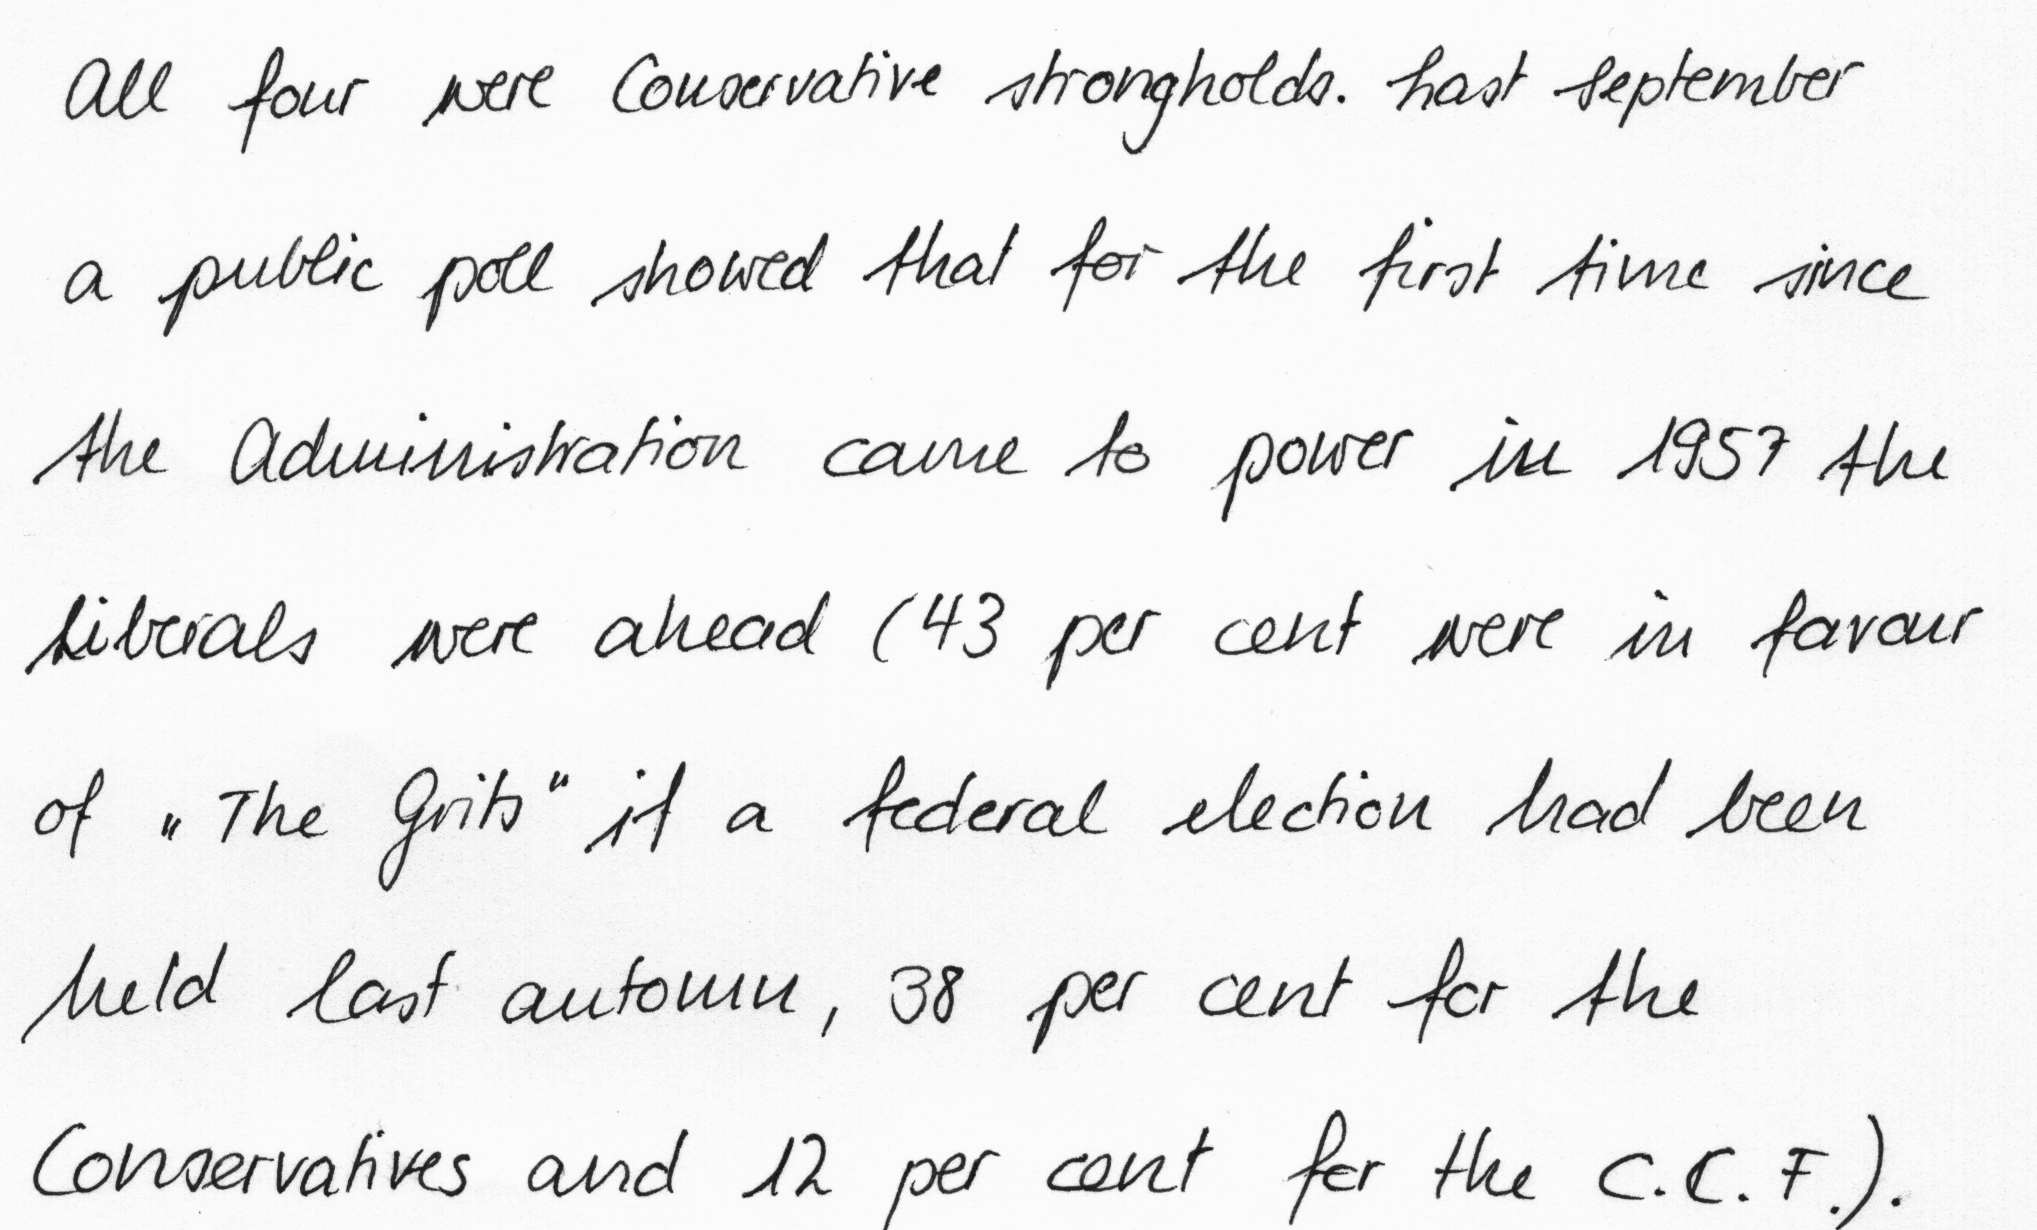 All four were Conservative strongholds. Last September
a public poll showed that for the first time since
the Administration came to power in 1957 the
Liberals were ahead (43 per cent were in favour
of „The Grits“ if a federal election had been
held last automn, 38 per cent for the
Conservatives and 12 per cent for the C.C.F.).